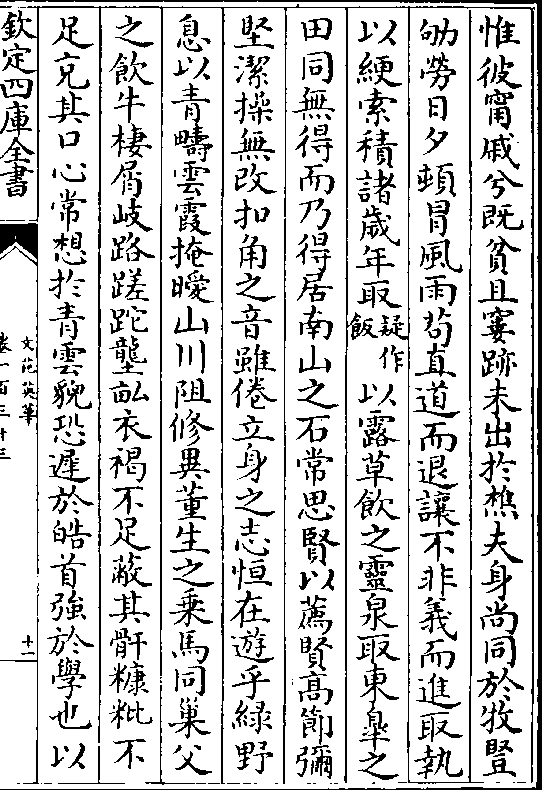 惟彼甯戚兮既貧且窶跡未出於樵夫身尚同於牧豎
劬勞日夕頓冒風雨苟直道而退讓不非義而進取執
以綆索積諸歲年取疑作飯以露草飲之靈泉取東臯之
田同無得而乃得居南山之石常思賢以薦賢高節彌
堅潔操無改扣角之音雖倦立身之志恒在遊乎緑野
息以青疇雲霞掩曖山川阻修異董生之乗馬同巢父
之飲牛棲屑岐路蹉跎壟畝衣褐不足蔽其骭糠粃不
足充其口心常想於青雲貌恐遲於皓首強於學也以
欽定四庫全書
文苑英華
卷一百三十三
十一